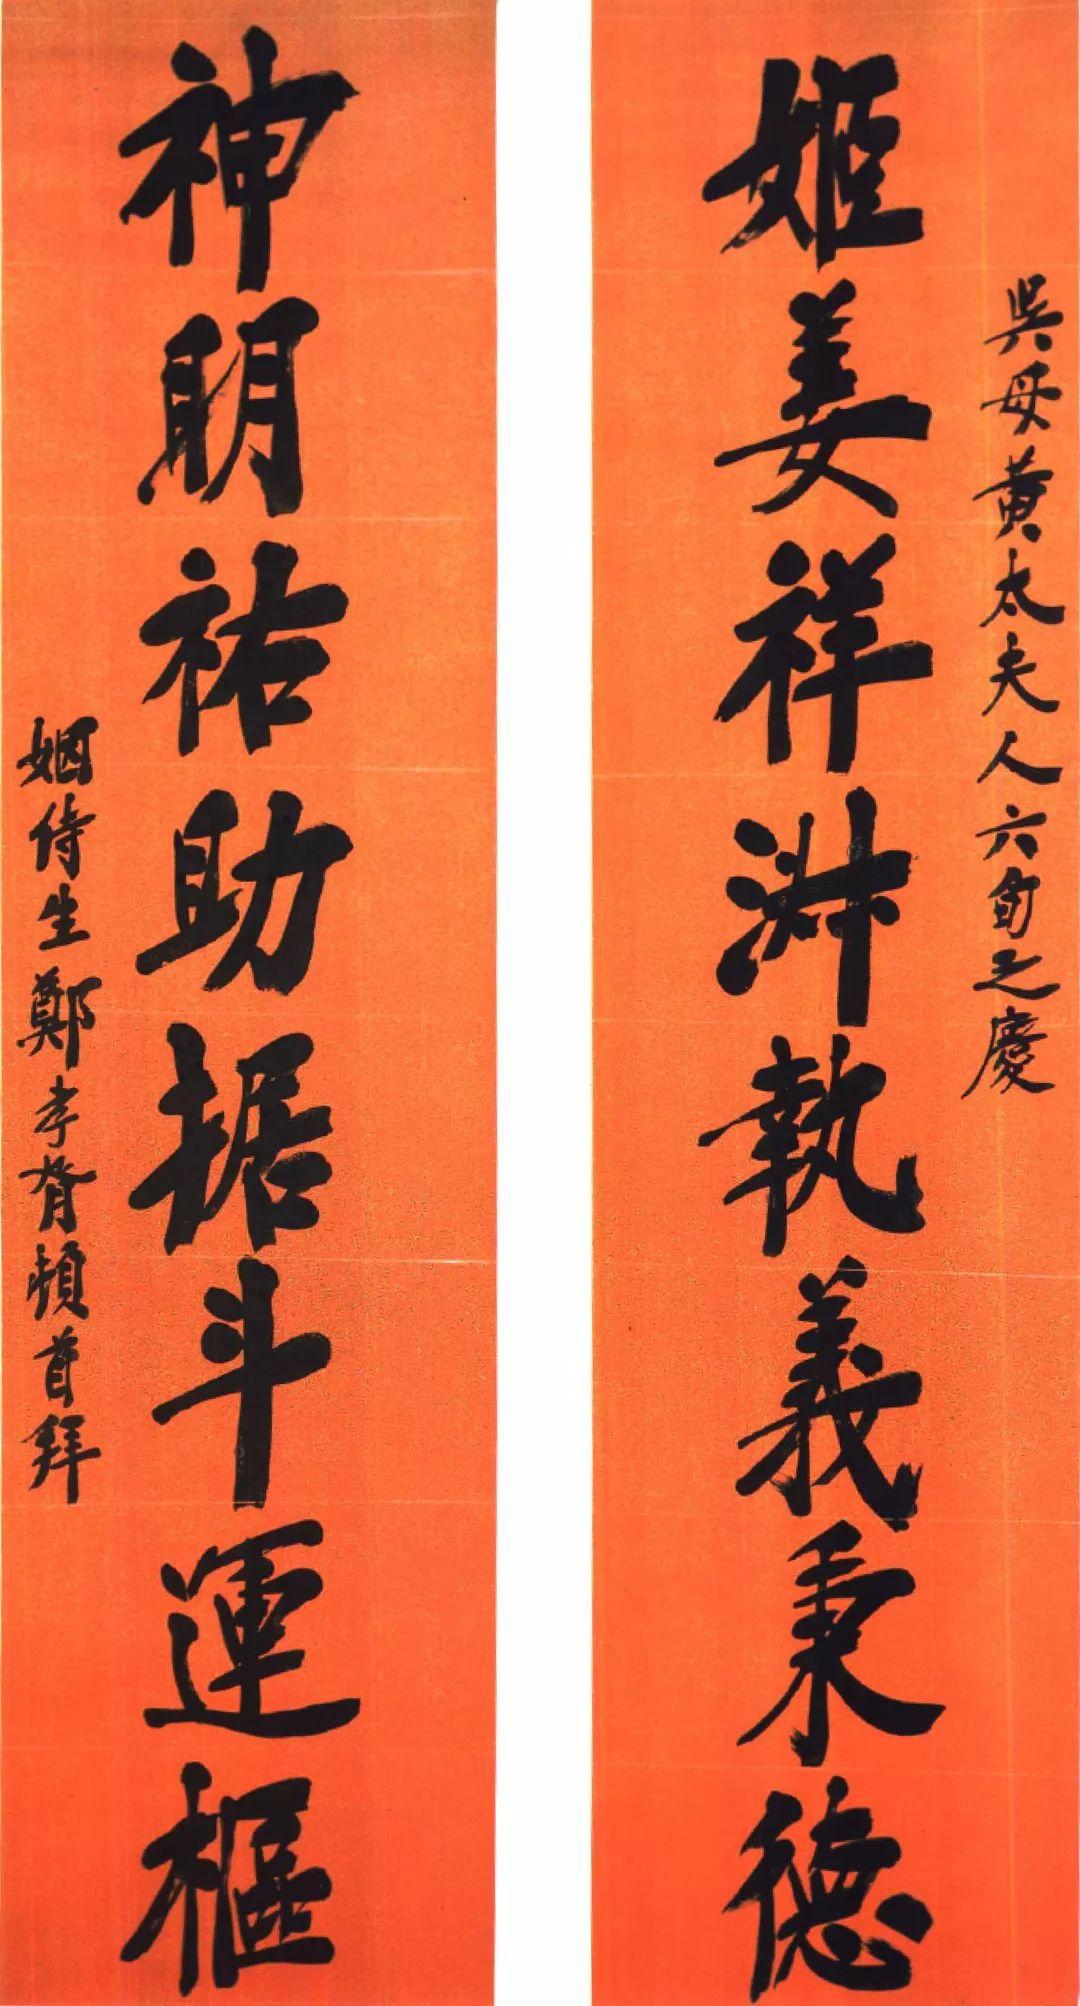 吳母黃太夫人六旬之慶
姬姜祥淑執義秉德
神明祐助据斗運樞
姻侍生鄭孝胥頓首拜